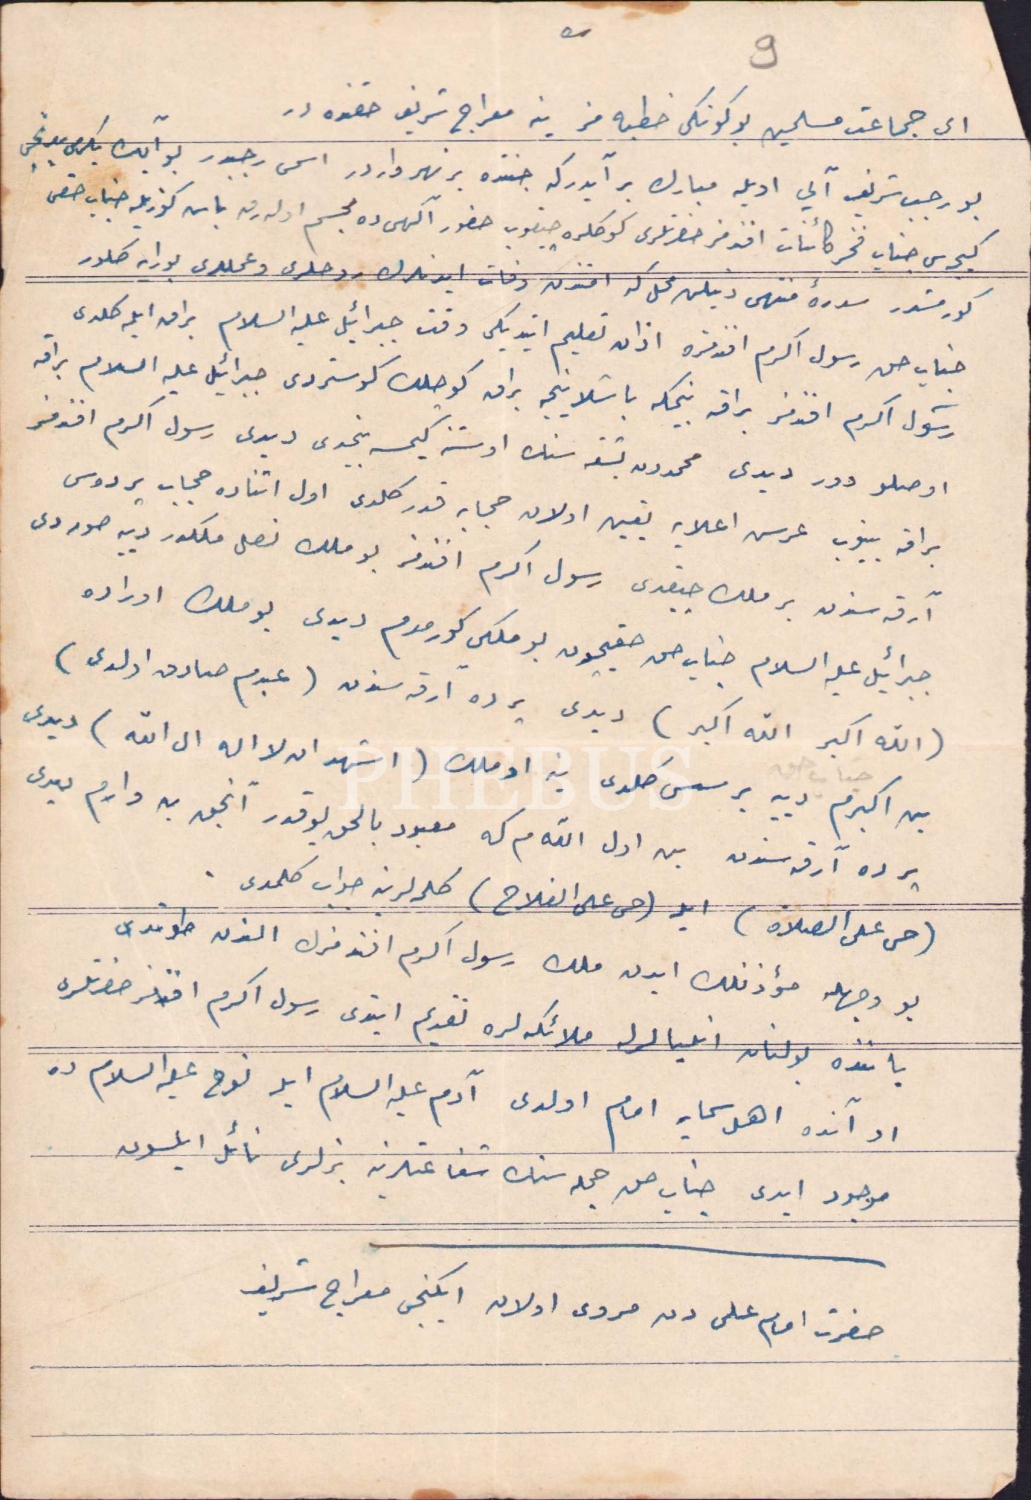 9
ای جماعت مسلمین بو کونکی خطبه مز ینه معراج شریف حقنده در
بو رجب شریف آیی اویله مبارك بر آیدرکه جنتده بر نهر واردر اسمی رجبدر بو آیك یکرمی یدنجی
کیجه سی جناب فخر کائنات افندمز حضرتلری کوکلره چیقوب حضور آلهی ده مجسم اوله رق باش کوزیله جناب حقی
کورمشدر سدرۀ منتهی دنیلن محل که امتدن وفات ایدنلرك روحلری و عمللری بورایه کلور
جناب حق رسول اکرم افندمزه اذان تعلیم ایتدیکی وقت جبرائیل علیه السلام براق ایله کلدی
رسول اکرم افندمز براقه بنیمکه باشلاینجه براق کوچلك کوستردی جبرائیل علیه السلام براقه
اوصلو دور دیدی محمددن بشقه سنك اوستنه کیمسه بنمدی دیدی رسول اکرم افندمز
براقه بینوب عرش اعلایه یقین اولان حجابه قدر کلدی اول اثناده حجاب پرده سی
آرقه سندن بر ملك چیقدی رسول اکرم افندمز بو ملك نصل ملکدر دییه صوردی
جبرائیل علیه السلام جناب حق حقیچون بو ملکی کورمدم دیدی بو ملك اوراده
(الله اکبر الله اکبر) دیدی پرده آرقه سندن (عبدم صادق اولدی)
جناب حق
بن اکبرم دییه بر سس کلدی ینه او ملك (اشهد ان لا اله الا الله) دیدی
پرده آرقه سندن بن اول اللهم که معبود بالحق یوقدر آنجق بن وارم دیدی
(حی علی الصلاة) ایله (حی علی الفلاح) کلمه لرینه جواب کلمدی .
بو وجهله مؤذنلك ایدن ملك رسول اکرم افندمزك الندن طوتدی
یاننده بولنان انبیالرله ملائکه لره تقدیم ایتدی رسول اکرم افندمز حضرتلری
او آنده اهل سمایه امام اولدی آدم علیه السلام ایله نوح علیه السلام ده
موجود ایدی جناب حق جمله سنك شفاعتلرینه بزلری نائل ایلسون
حضرت امام علی دن مروی اولان ایکنجی معراج شریف
PHEBUS